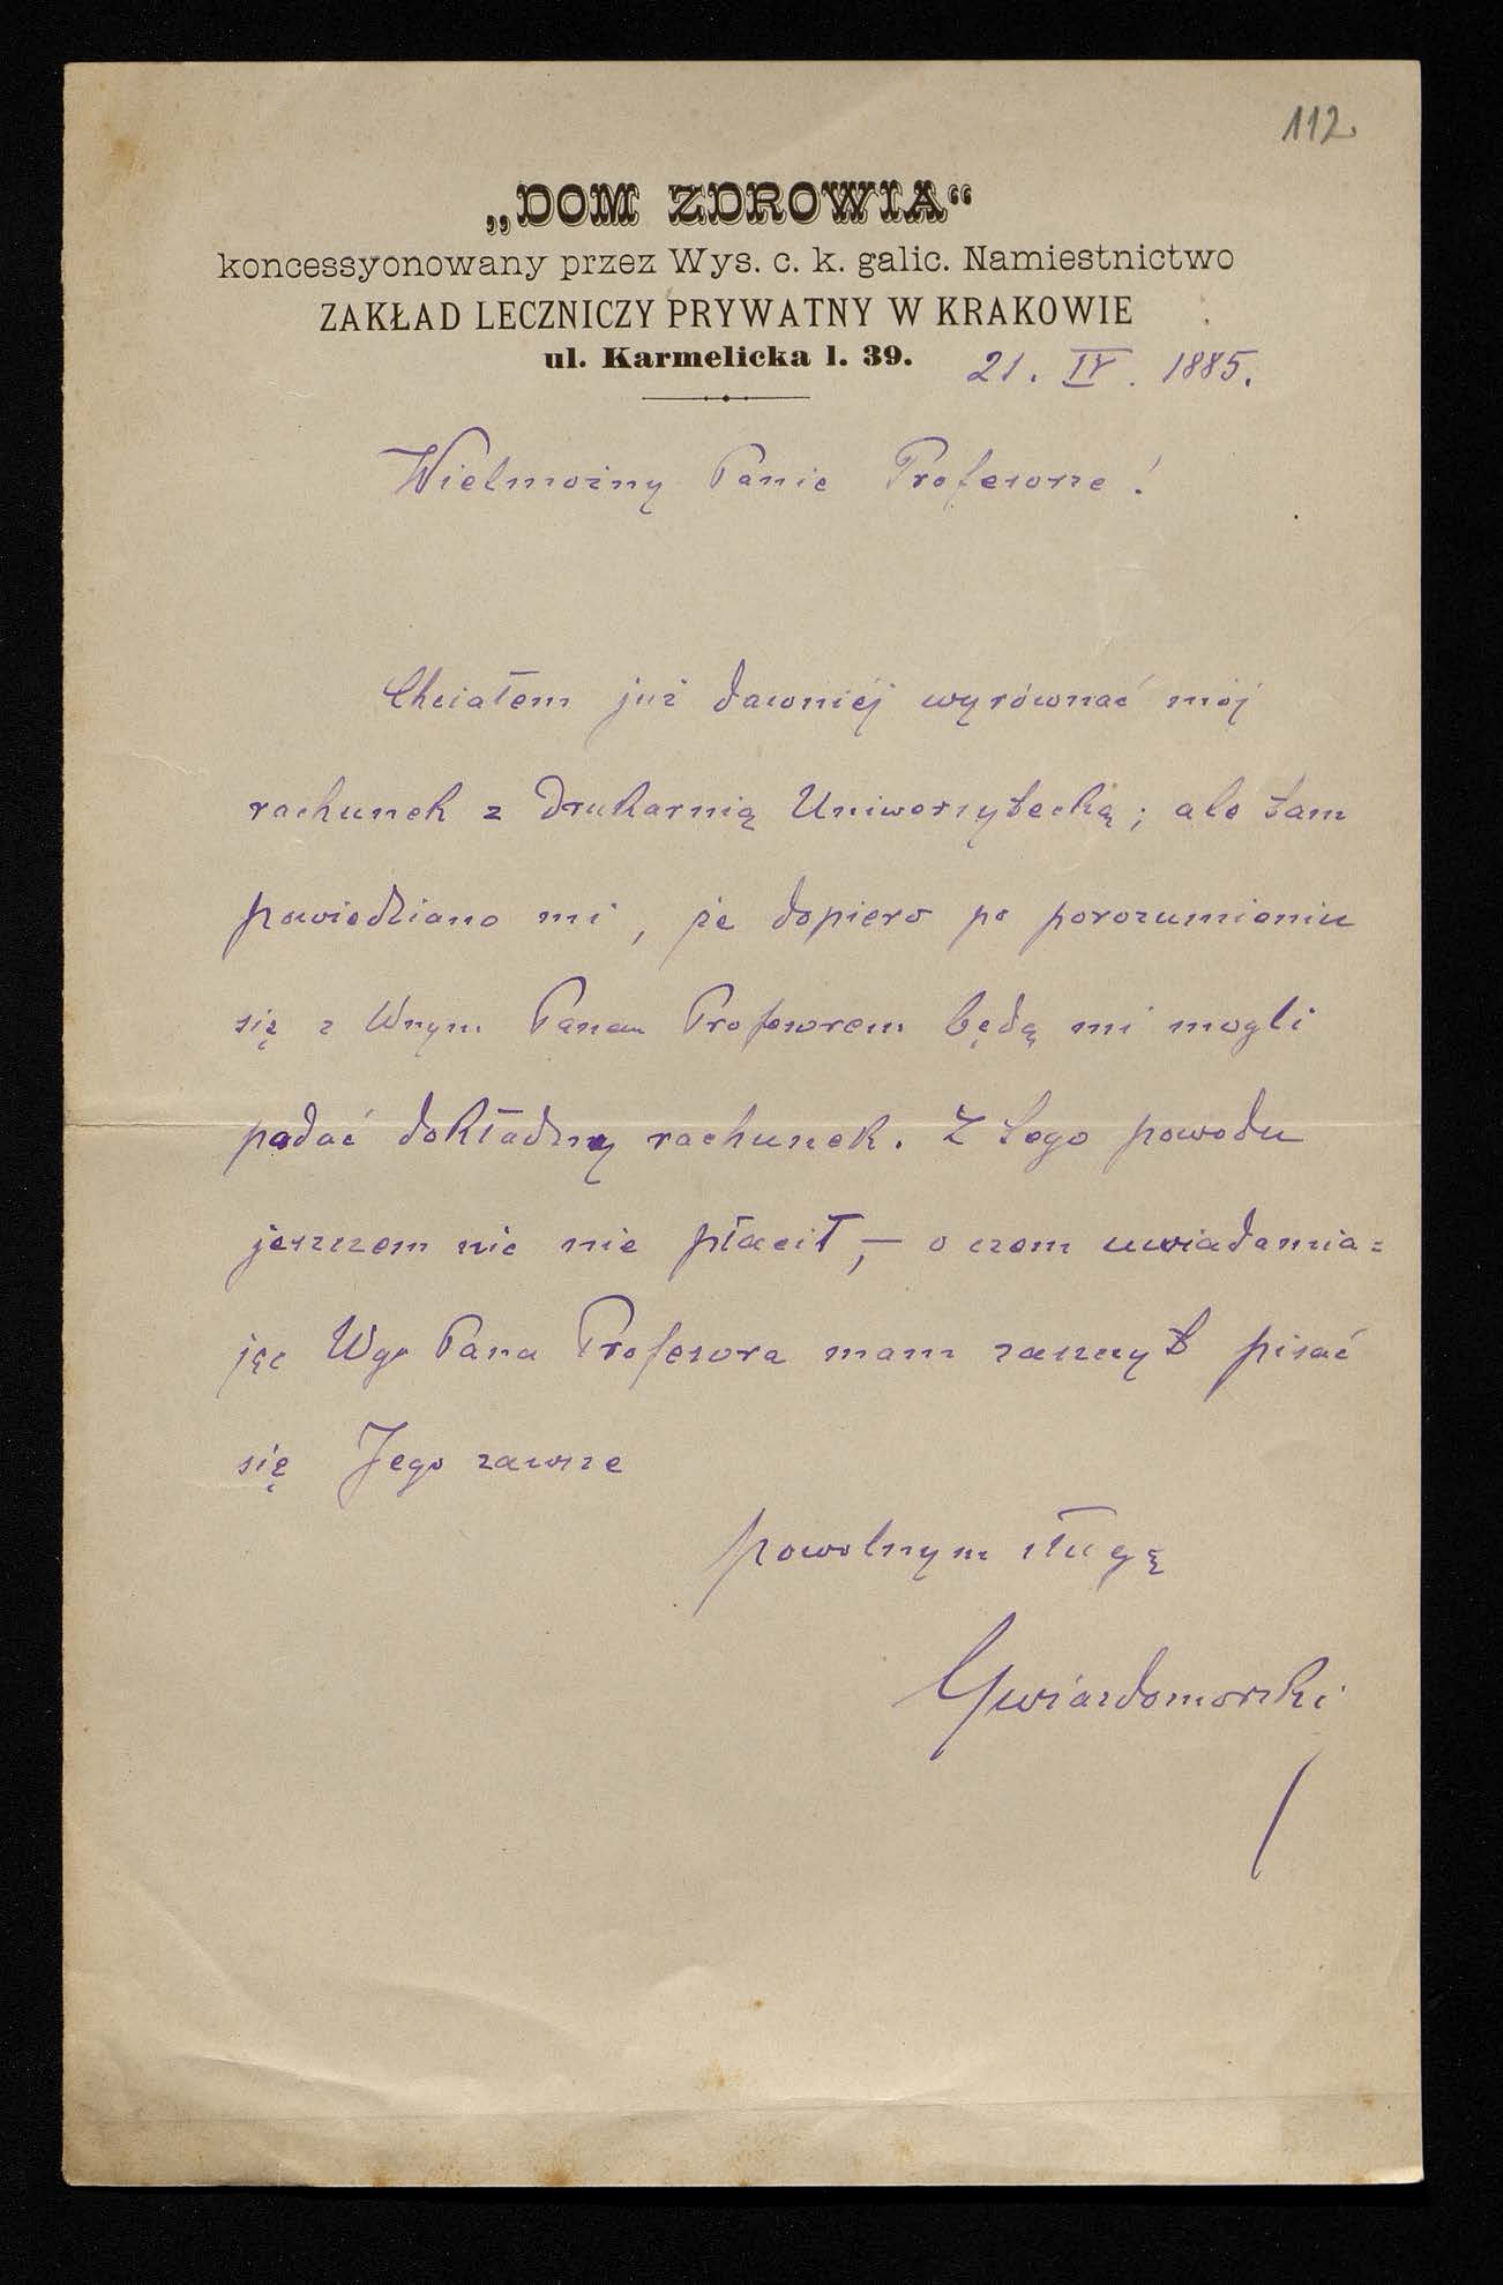 112.
„DOM ZDROWIA“
koncessyonowany przez Wys. c. k. galic. Namiestnictwo
ZAKŁAD LECZNICZY PRYWATNY W KRAKOWIE
ul. Karmelicka l. 39.
21. IV. 1885.
Wielmożny Panie Profesorze!
Chciałem już dawniéj wyrównać mój
rachunek z Drukarnią Uniwersytecką; ale tam
powiedziano mi, że dopiero po porozumieniu
się z Wnym Panem Profesorem będą mi mogli
podać dokładny rachunek. Z tego powodu
jeszczem nic nie płacił, — o czem uwiadamia=
jąc Wgo Pana Profesora mam zaszczyt pisać
się Jego zawsze
powolnym sługą
Gwiazdomorski